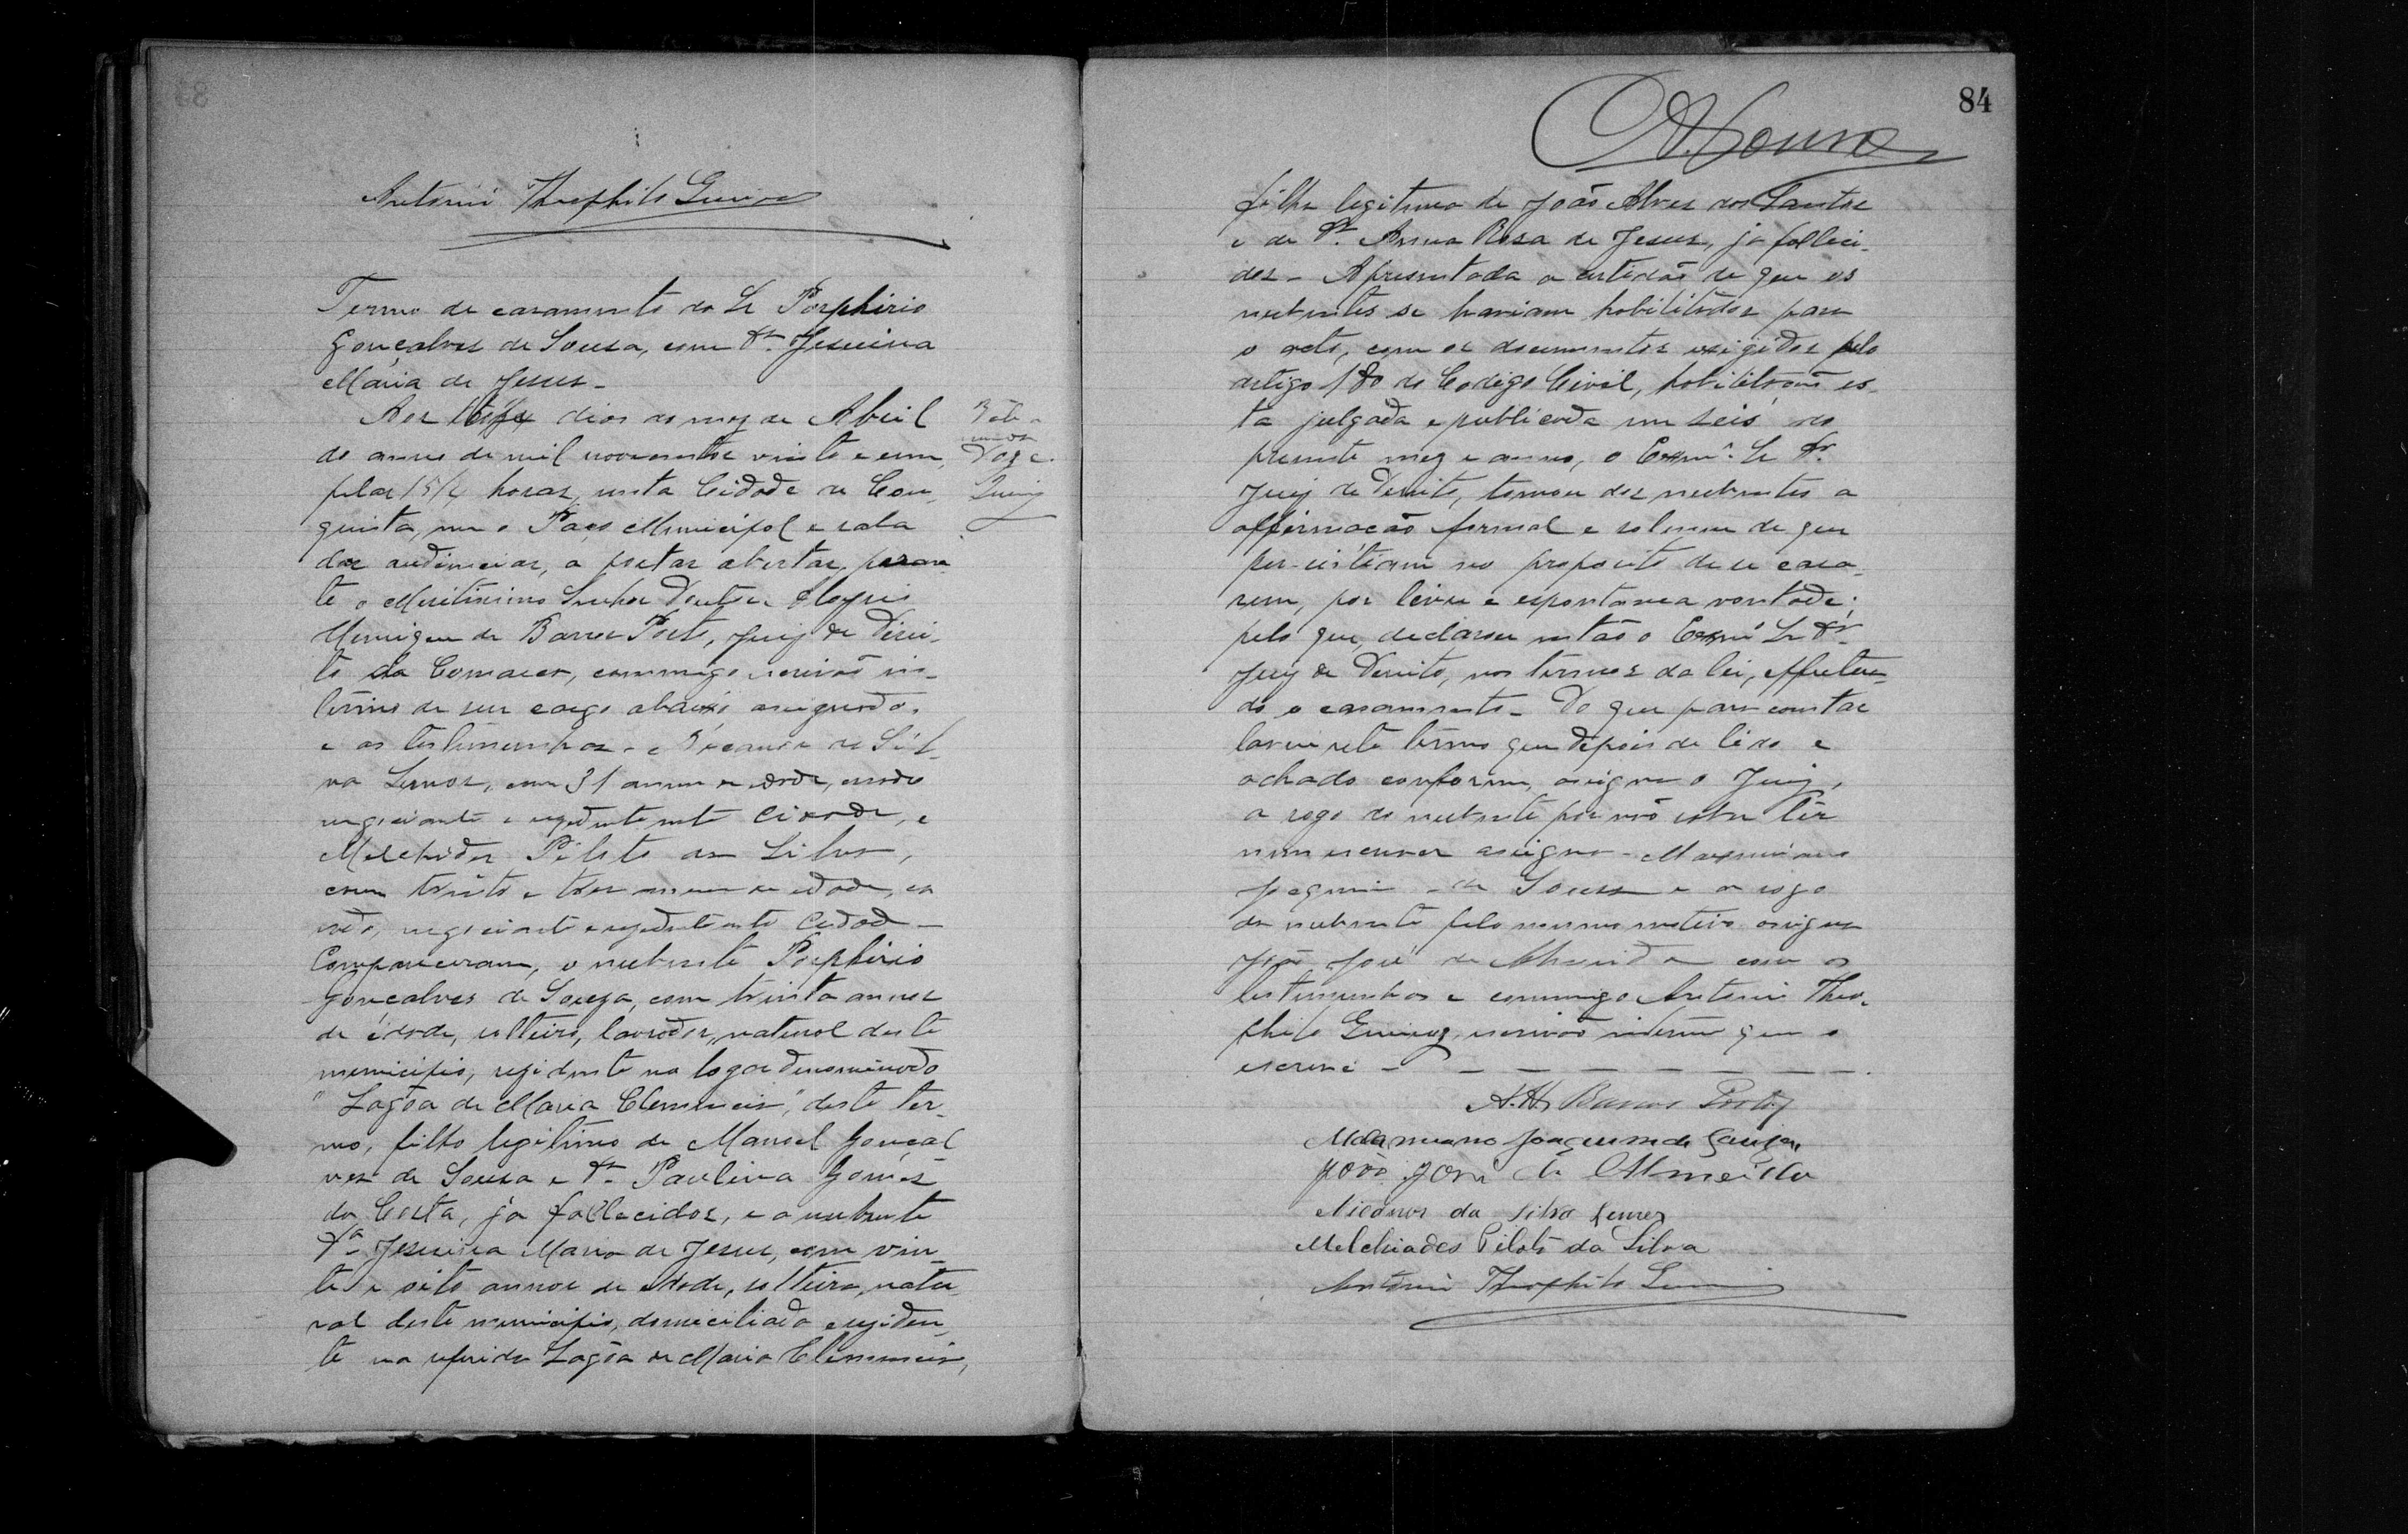 Antonio Theophilo
Termo de casamento do Sr Porphirio
Gonçalves de Sousa, com Da. Jesuina
Maria de Jesus -
Aos dias do mez de Abril
do anno de mil novecentos vinte e um,
pelas horas, nesta Cidade de Con
quista, em o Paço Municipal e sala
das audiencias, a portas abertas, peran
te o Meritissimo Senhor Doutor
Henrique de Barros Porto, Juiz de Direi-
to da Comarca, commigo escrivão in-
terino de seu cargo abaixo assignado,
e as testemunhas - Nicanor da Sil-
va Lemos, com 31 annos de edade, casado
negociante e rezidente nesta Cidade, e
Melchides Piloto da Silva,
com trinta e tres annos de edade, ca
sado, negociante e rezidente nesta Cidade -
Compareceram, o nubente Porphirio
Gonçalves de Souza, com trinta annos
de edade, solteiro, lavrador, natural deste
municipio, rezidente no logar denominado
"Lagôa de Maria Clemencia", deste ter-
mo, filho legitimo de Manoel Gonçal
ves de Sousa e Da. Paulina Gomes
da Costa, já fallecidos, e a nubente
Da. Jesuina Maria de Jesus, com vin-
te e oito annos de edade, solteira, natu
ral deste municipio, domiciliada e reziden
te na referida Lagôa de Maria Clemencia,
Doze.
84
filha legitima de João Alves dos Santos
e de Da. Anna Rosa de Jesus, já falleci-
dos - Apresentada a certidão de que os
nubentes se haviam habilitados para
o acto, com os documentos exigidos pelo
artigo 180 do Codigo Civil, habilitação es-
ta julgada e publicada em seis do
presente mez e anno, o Exmo. Sr Dr.
Juiz de Direito, tomou dos nubentes a
affirmação formal e solemne de que
persistiam no proposito de se casa-
rem, por livre e espontanea vontade;
pelo que, declarou então o Exmo Sr Dr.
Juiz de Direito, nos termos da lei, effectua-
do o casamento - Do que para constar
lavrei este termo que depois de lido e
achado conforme, assigna o Juiz,
a rogo do nubente por não saber ler
nem escrever assigna - Maximiano
Joaquim de Sousa e a rogo
da nubente pelo mesmo motivo assigna
João José de Almeida com as
testemunhas e commigo Antonio Theo-
philo escrivão interino que o
escrevi -
A. H. Barros Porto
Maximiano Joaquim de Souza
João José de Almeida
Nicanor da Silva Lemos
Melchiades Piloto da Silva
Antonio Theophilo